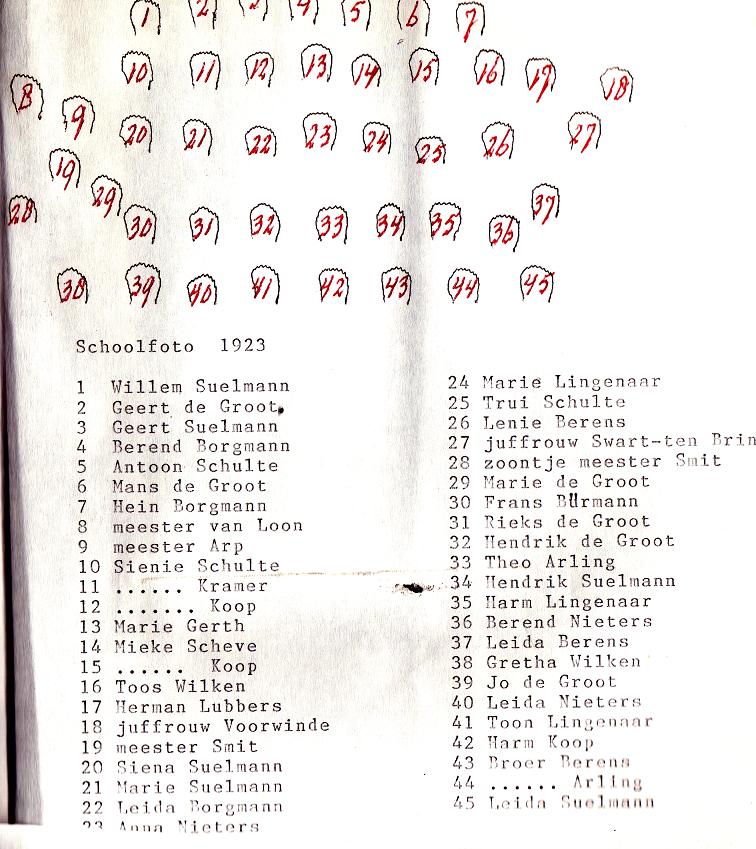 1 2 3 4 5 6 7
10 11 12 13 14 15 16 17 18
8 9 20 21 22 23 24 25 26 27
19
28 29 30 31 32 33 34 35 36 37
38 39 40 41 42 43 44 45
Schoolfoto 1923
1 Willem Suelmann
2 Geert de Groot
3 Geert Suelmann
4 Berend Borgmann
5 Antoon Schulte
6 Mans de Groot
7 Hein Borgmann
8 meester van Loon
9 meester Arp
10 Sienie Schulte
11 ...... Kramer
12 ....... Koop
13 Marie Gerth
14 Mieke Scheve
15 ...... Koop
16 Toos Wilken
17 Herman Lubbers
18 juffrouw Voorwinde
19 meester Smit
20 Siena Suelmann
21 Marie Suelmann
22 Leida Borgmann
23 Anna Nieters
24 Marie Lingenaar
25 Trui Schulte
26 Lenie Berens
27 juffrouw Swart-ten Brin
28 zoontje meester Smit
29 Marie de Groot
30 Frans Bürmann
31 Rieks de Groot
32 Hendrik de Groot
33 Theo Arling
34 Hendrik Suelmann
35 Harm Lingenaar
36 Berend Nieters
37 Leida Berens
38 Gretha Wilken
39 Jo de Groot
40 Leida Nieters
41 Toon Lingenaar
42 Harm Koop
43 Broer Berens
44 ...... Arling
45 Leida Suelmann